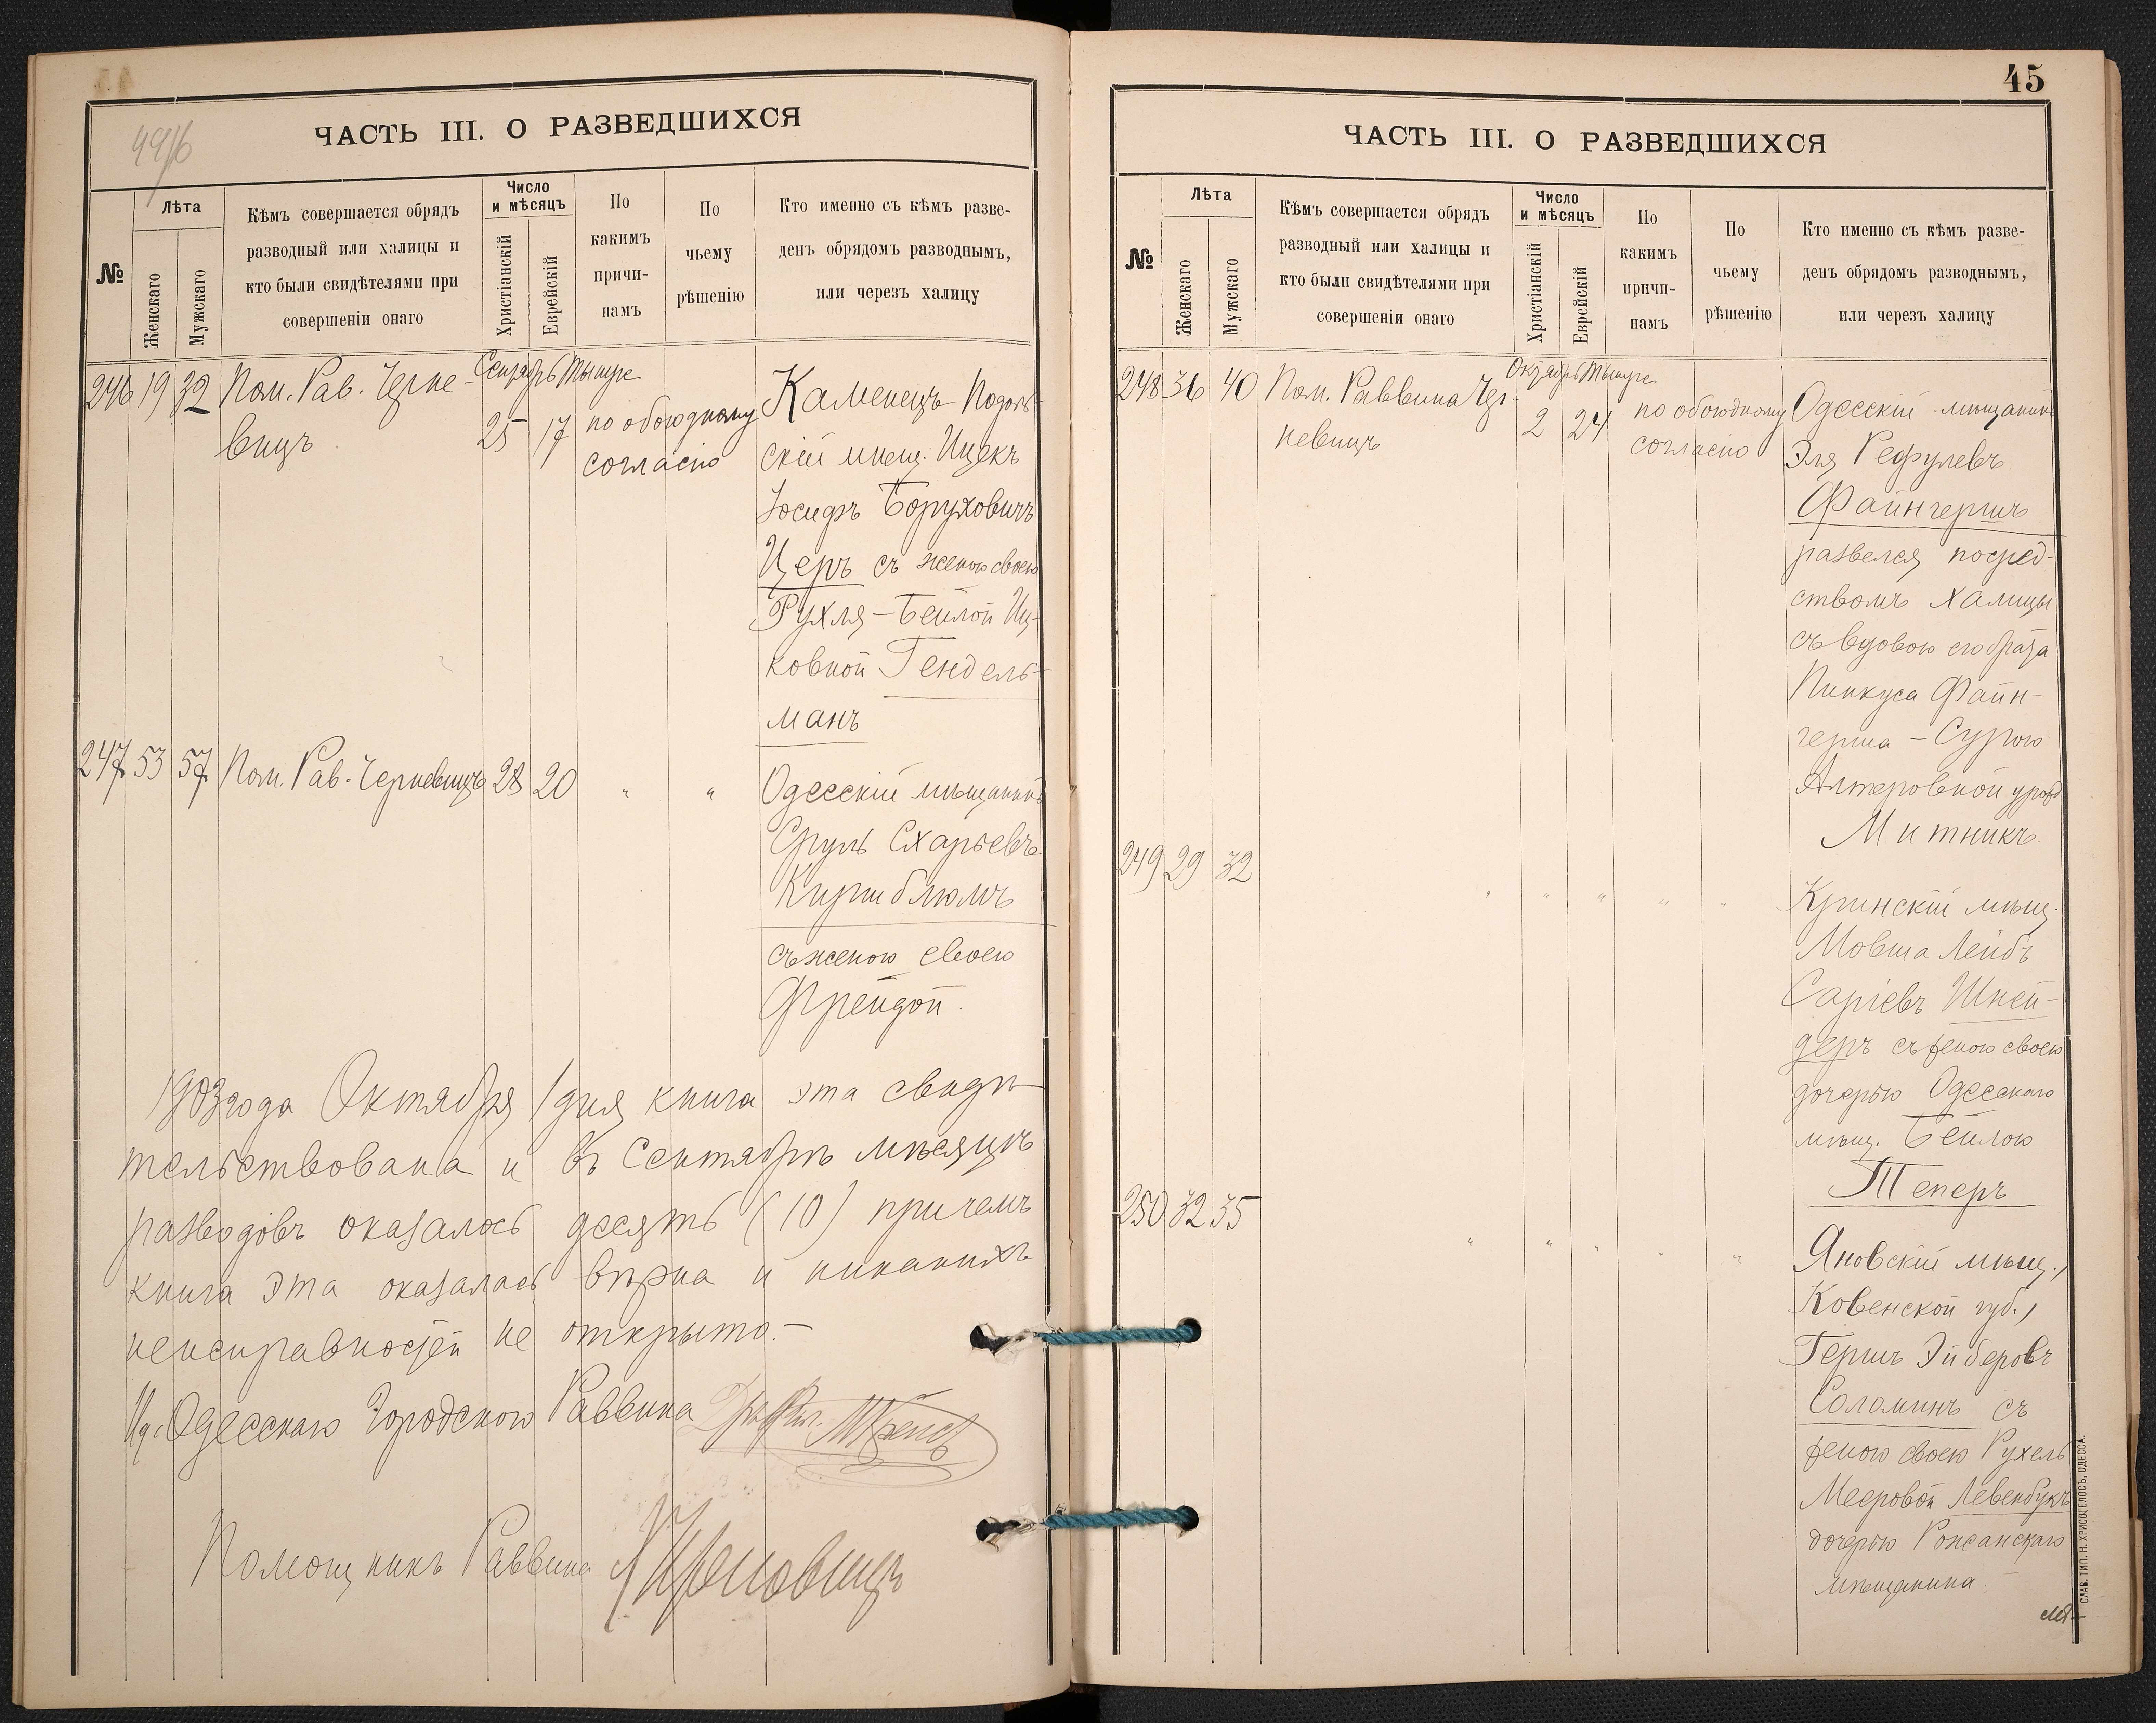 ЧАСТЬ III. О РАЗВЕДШИХСЯ
№
Лѣта
Женскаго
Мужскаго
Кѣмъ совершается обрядъ
разводный или халицы и
кто были свидѣтелями при
совершеніи онаго
Число
и мѣсяцъ
Христіанскій
Еврейскій
По
какимъ
причи-
намъ
По
чьему
рѣшенію
Кто именно съ кѣмъ разве-
денъ обрядомъ разводнымъ,
или черезъ халицу
246 19 32 Пом. Рав. Черне-
вицъ
Сентябрь Тышре
25 17
по обоюдному
согласію
Каменецъ Подоль-
скій мѣщ. Ицекъ
Іосифъ Боруховичъ
Церъ съ женою своею
Рухля-Бейлой Иц-
ковной Гендель-
манъ
247 53 57 Пом. Рав. Черневицъ 28 20 " "
Одесскій мѣщанинъ
Сруль Схарьевъ
Киршблюмъ
съ женою своею
Фрейдой.
1903 года Октября 1 дня книга эта свидѣ-
тельствована и въ Сентябрѣ мѣсяцѣ
разводовъ оказалось десять (10) причемъ
книга эта оказалась вѣрна и никакихъ
неисправностей не открыто.-
И.д. Одесскаго Городского Раввина
Помощникъ Раввина
45
ЧАСТЬ III. О РАЗВЕДШИХСЯ
№
Лѣта
Женскаго
Мужскаго
Кѣмъ совершается обрядъ
разводный или халицы и
кто были свидѣтелями при
совершеніи онаго
Число
и мѣсяцъ
Христіанскій
Еврейскій
По
какимъ
причи-
намъ
По
чьему
рѣшенію
Кто именно съ кѣмъ разве-
денъ обрядомъ разводнымъ,
или черезъ халицу
248 36 40 Пом. Раввина Чер-
невицъ
Октябрь Тышре
2 24
по обоюдному
согласію
Одесскій мѣщанинъ
Эля Рефулевъ
Файнгершъ
развелся посред-
ствомъ халицы
съ вдовою его брата
Пинкуса Файн-
герша - Сурою
Алтеровной урожд.
Митникъ.
249 29 32 " " " " "
Кринскій мѣщ.
Мовша Лейбъ
Саріевъ Шней-
деръ съ женою своею
дочерью Одесскаго
мѣщ. Бейлою
Теперъ
250 32 35 " " " " "
Яновскій мѣщ.,
Ковенской губ.,
Гершъ Эйберовъ
Соломинъ съ
женою своею Рухель
Мееровой Левенбукъ
дочерью Рожанскаго
мѣщанина.
СЛАВ. ТИП. Н. ХРИСОГЕЛОСЪ, ОДЕССА.